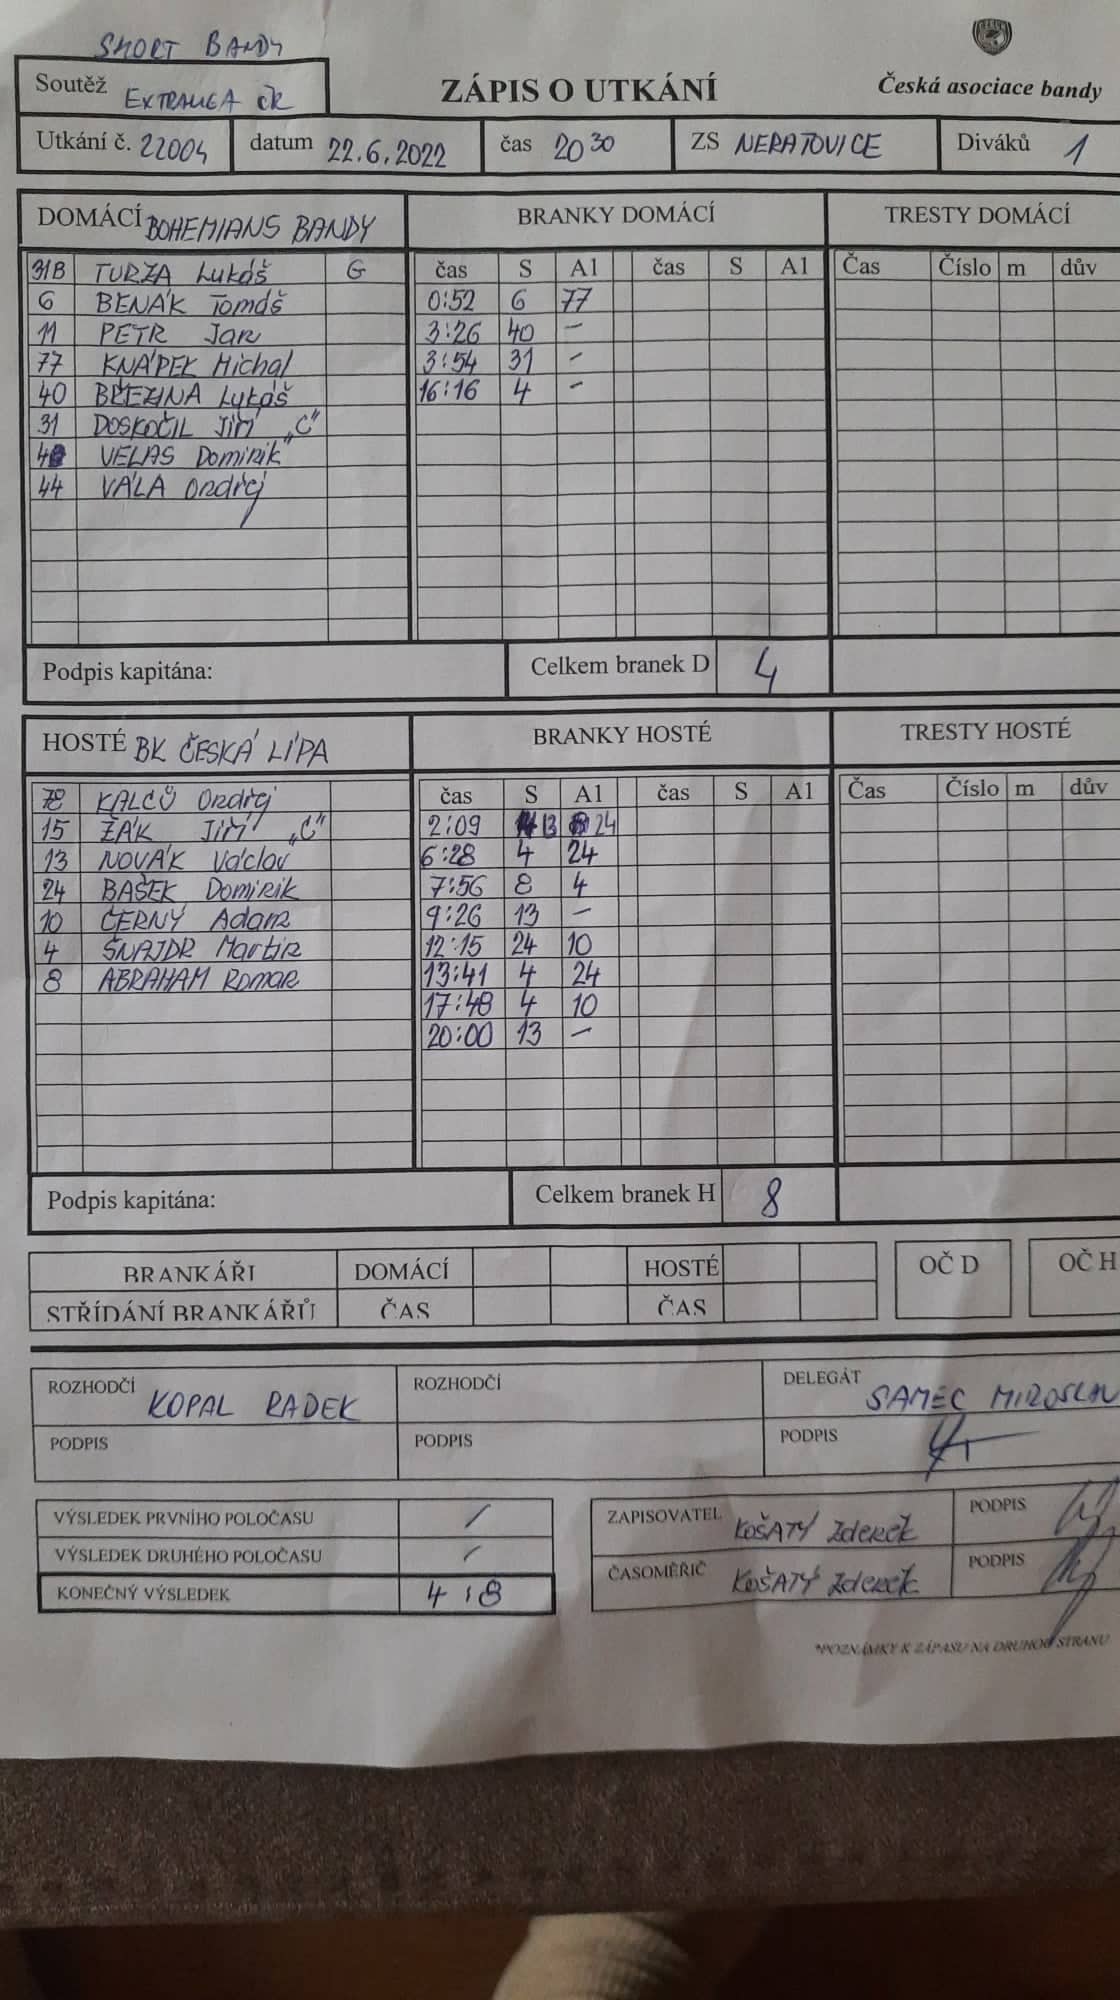 SHORT BANDY
Soutěž EXTRALIGA ČR
ZÁPIS O UTKÁNÍ
Česká asociace bandy
Utkání č. 22004 datum 22.6.2022 čas 20 30 ZS NERATOVICE Diváků 1
DOMÁCÍ BOHEMIANS BANDY BRANKY DOMÁCÍ TRESTY DOMÁCÍ
31B TURZA Lukáš G čas S A1 čas S A1 Čas Číslo m dův
6 BENÁK Tomáš 0:52 6 77
11 PETR Jan 3:26 40 –
77 KNÁPEK Michal 3:54 31 –
40 BŘEZINA Lukáš 16:16 4 –
31 DOSKOČIL Jiří „C"
4 VELAS Dominik
44 VÁLA Ondřej
Podpis kapitána: Celkem branek D 4
HOSTÉ BK ČESKÁ LÍPA BRANKY HOSTÉ TRESTY HOSTÉ
78 KALCŮ Ondřej čas S A1 čas S A1 Čas Číslo m dův
15 ŽÁK Jiří „C" 2:09 13 24
13 NOVÁK Václav 6:28 4 24
24 BAŠEK Dominik 7:56 8 4
10 ČERNÝ Adam 9:26 13 –
4 ŠNAJDR Martin 12:15 24 10
8 ABRAHAM Roman 13:41 4 24
17:48 4 10
20:00 13 –
Podpis kapitána: Celkem branek H 8
BRANKÁŘI DOMÁCÍ HOSTÉ OČ D OČ H
STŘÍDÁNÍ BRANKÁŘŮ ČAS ČAS
ROZHODČÍ KOPAL RADEK ROZHODČÍ DELEGÁT SAMEC MIROSLAV
PODPIS PODPIS PODPIS
VÝSLEDEK PRVNÍHO POLOČASU / ZAPISOVATEL KOŠATÝ Zdeněk PODPIS
VÝSLEDEK DRUHÉHO POLOČASU / ČASOMĚŘIČ KOŠATÝ Zdeněk PODPIS
KONEČNÝ VÝSLEDEK 4:8
*POZNÁMKY K ZÁPASU NA DRUHOU STRANU